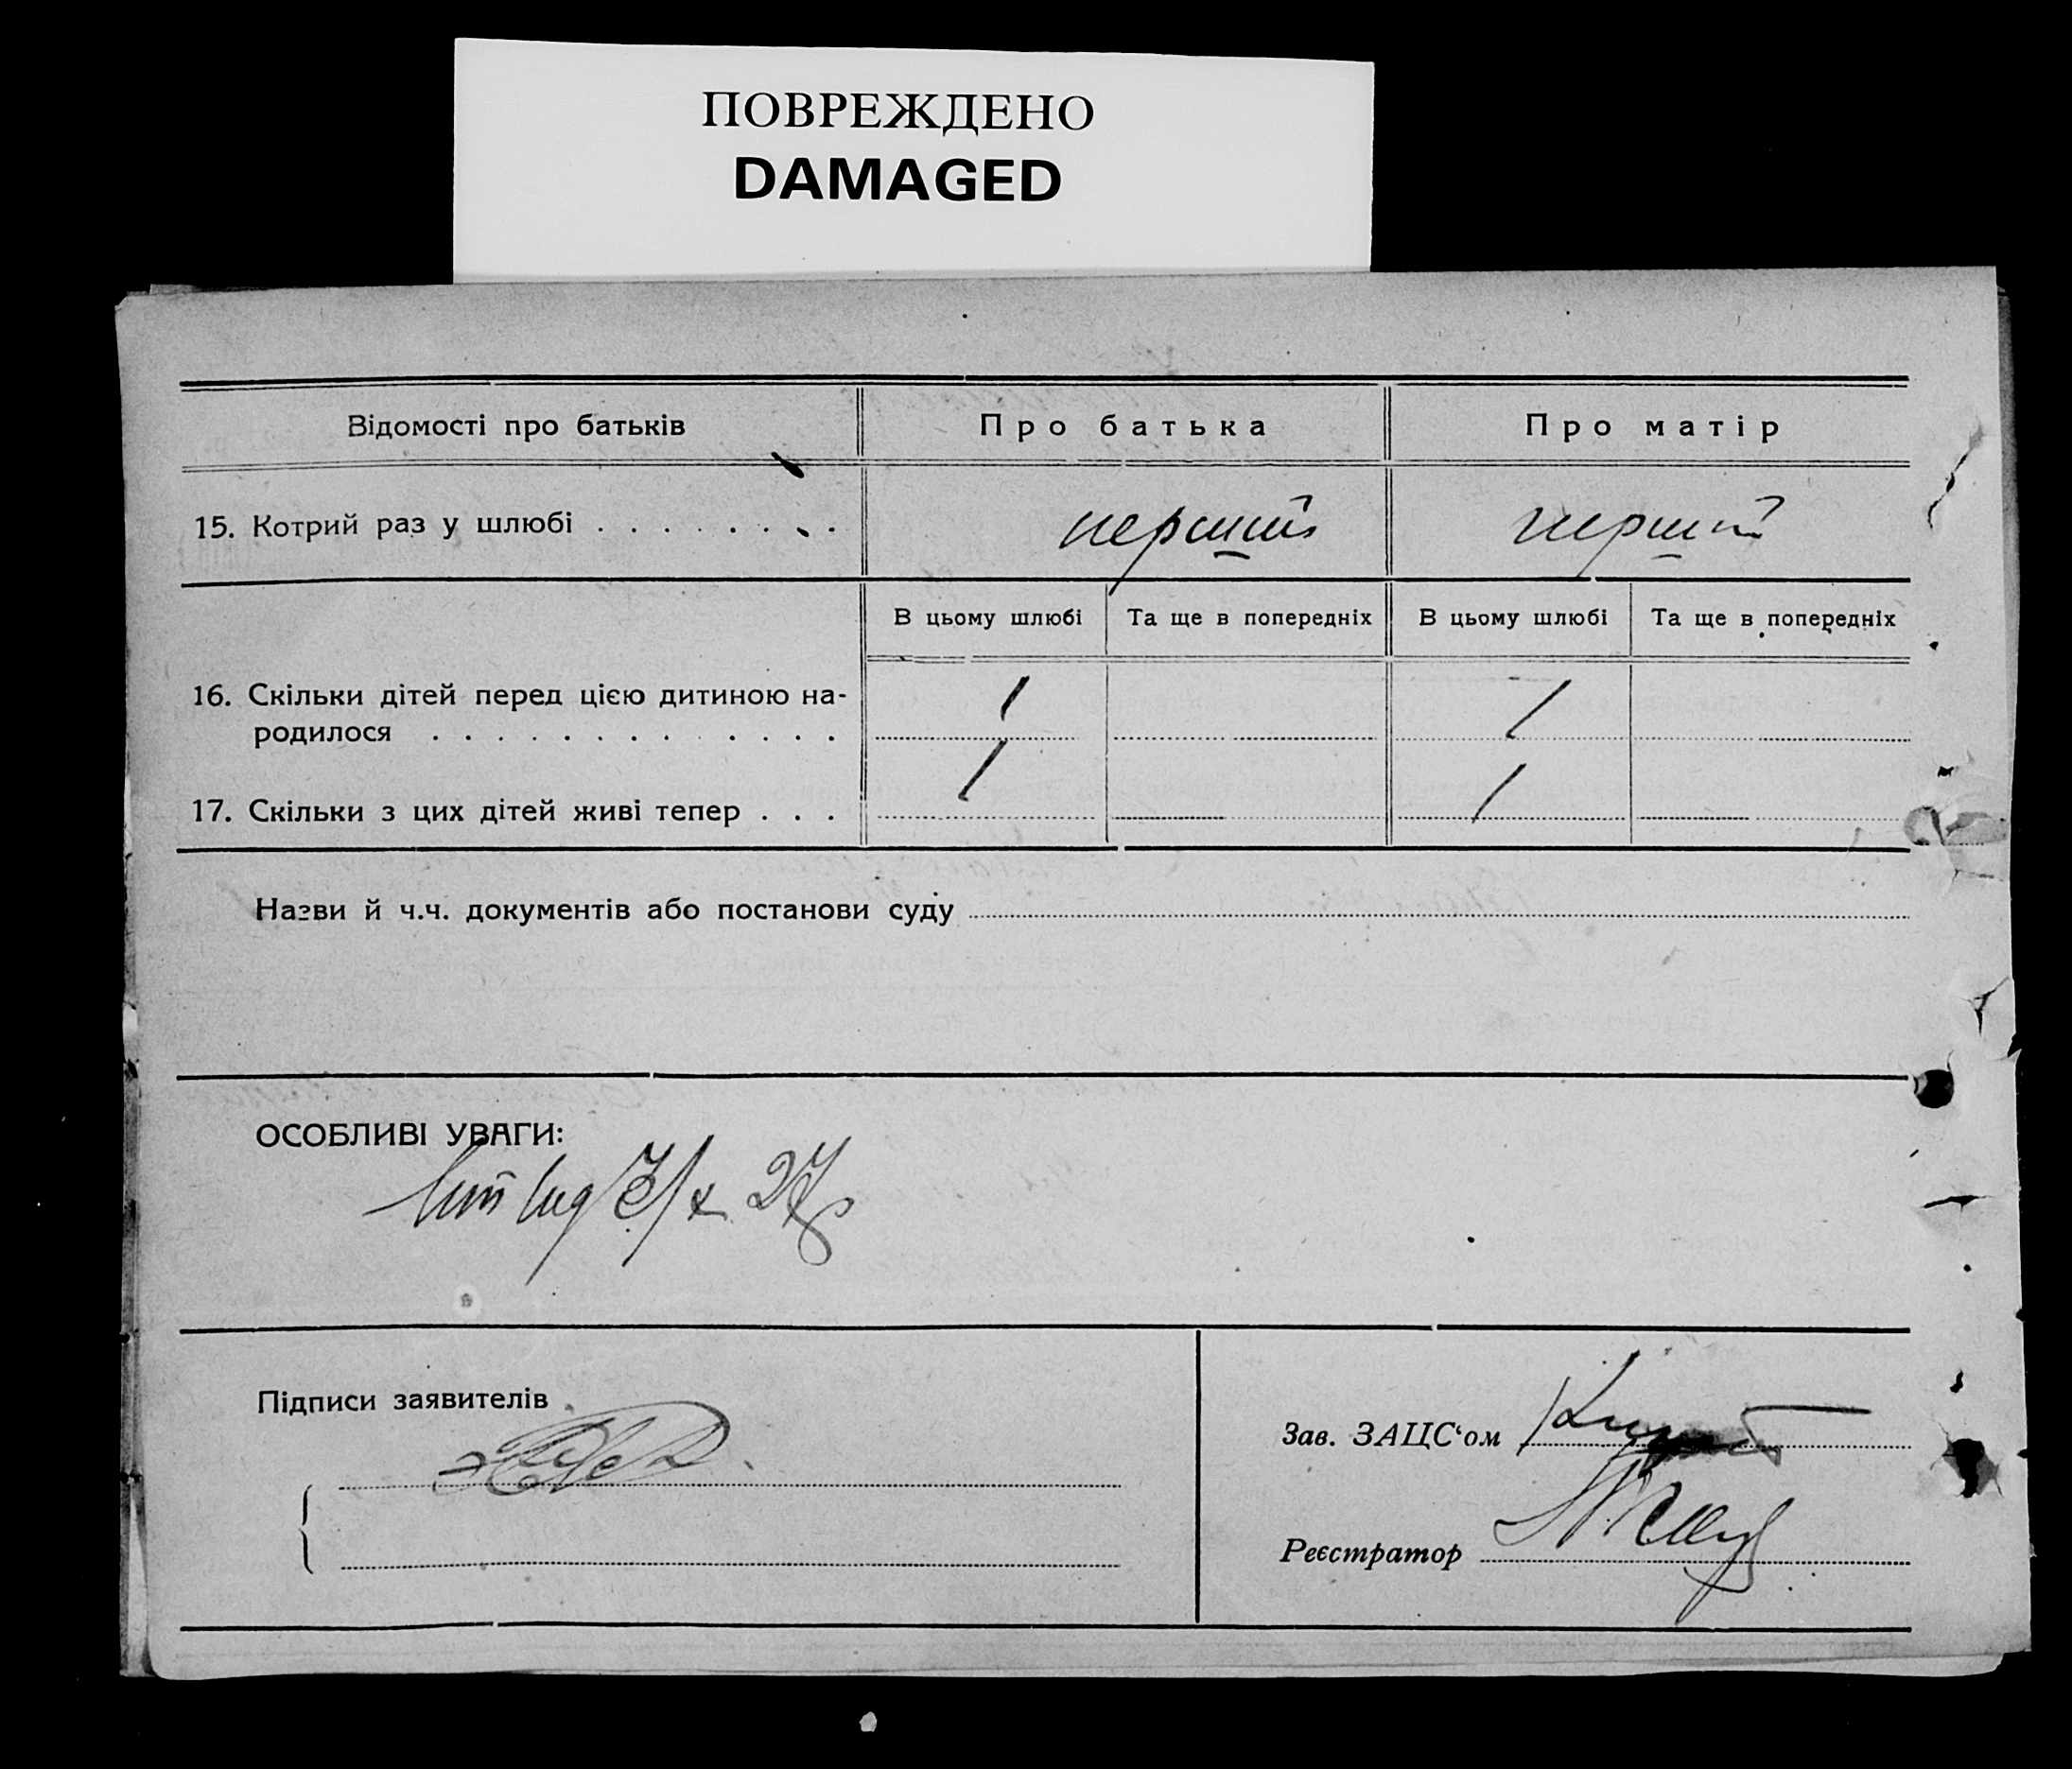 ПОВРЕЖДЕНО
DAMAGED
Відомості про батьків
Про батька
Про матір
15. Котрий раз у шлюбі . . . . . . . .
перший
перший
В цьому шлюбі
Та ще в попередніх
В цьому шлюбі
Та ще в попередніх
16. Скільки дітей перед цією дитиною на-
родилося . . . . . . . . . . . . .
1
1
17. Скільки з цих дітей живі тепер . . .
1
1
Назви й ч.ч. документів або постанови суду
ОСОБЛИВІ УВАГИ:
27
Підписи заявителів
Зав. ЗАЦС‘ом
Реєстратор